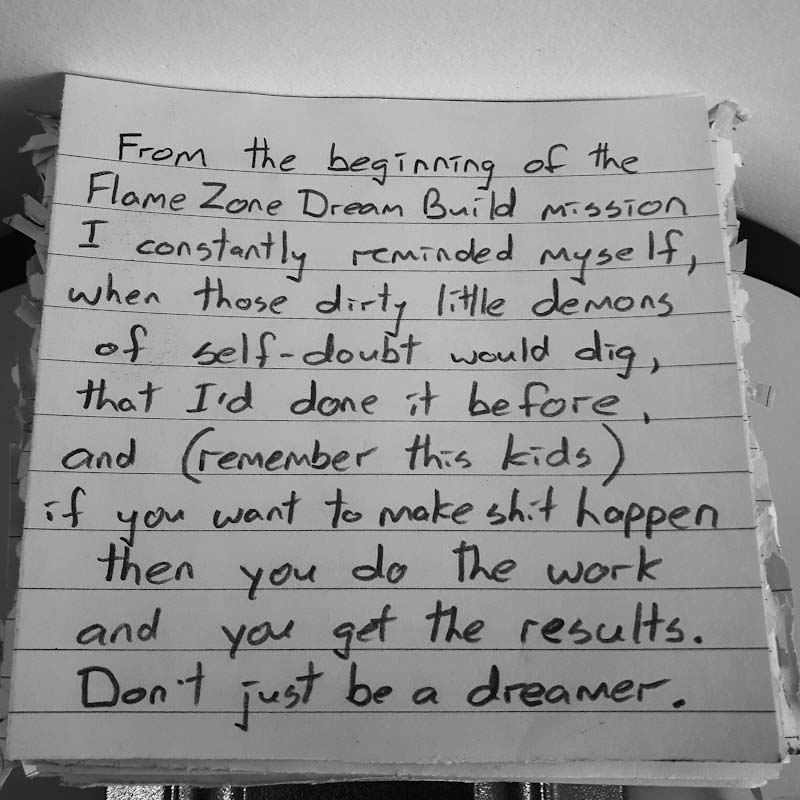 From the beginning of the
Flame Zone Dream Build mission
I constantly reminded myself,
when those dirty little demons
of self-doubt would dig,
that I'd done it before,
and (remember this kids)
if you want to make shit happen
then you do the work
and you get the results.
Don't just be a dreamer.